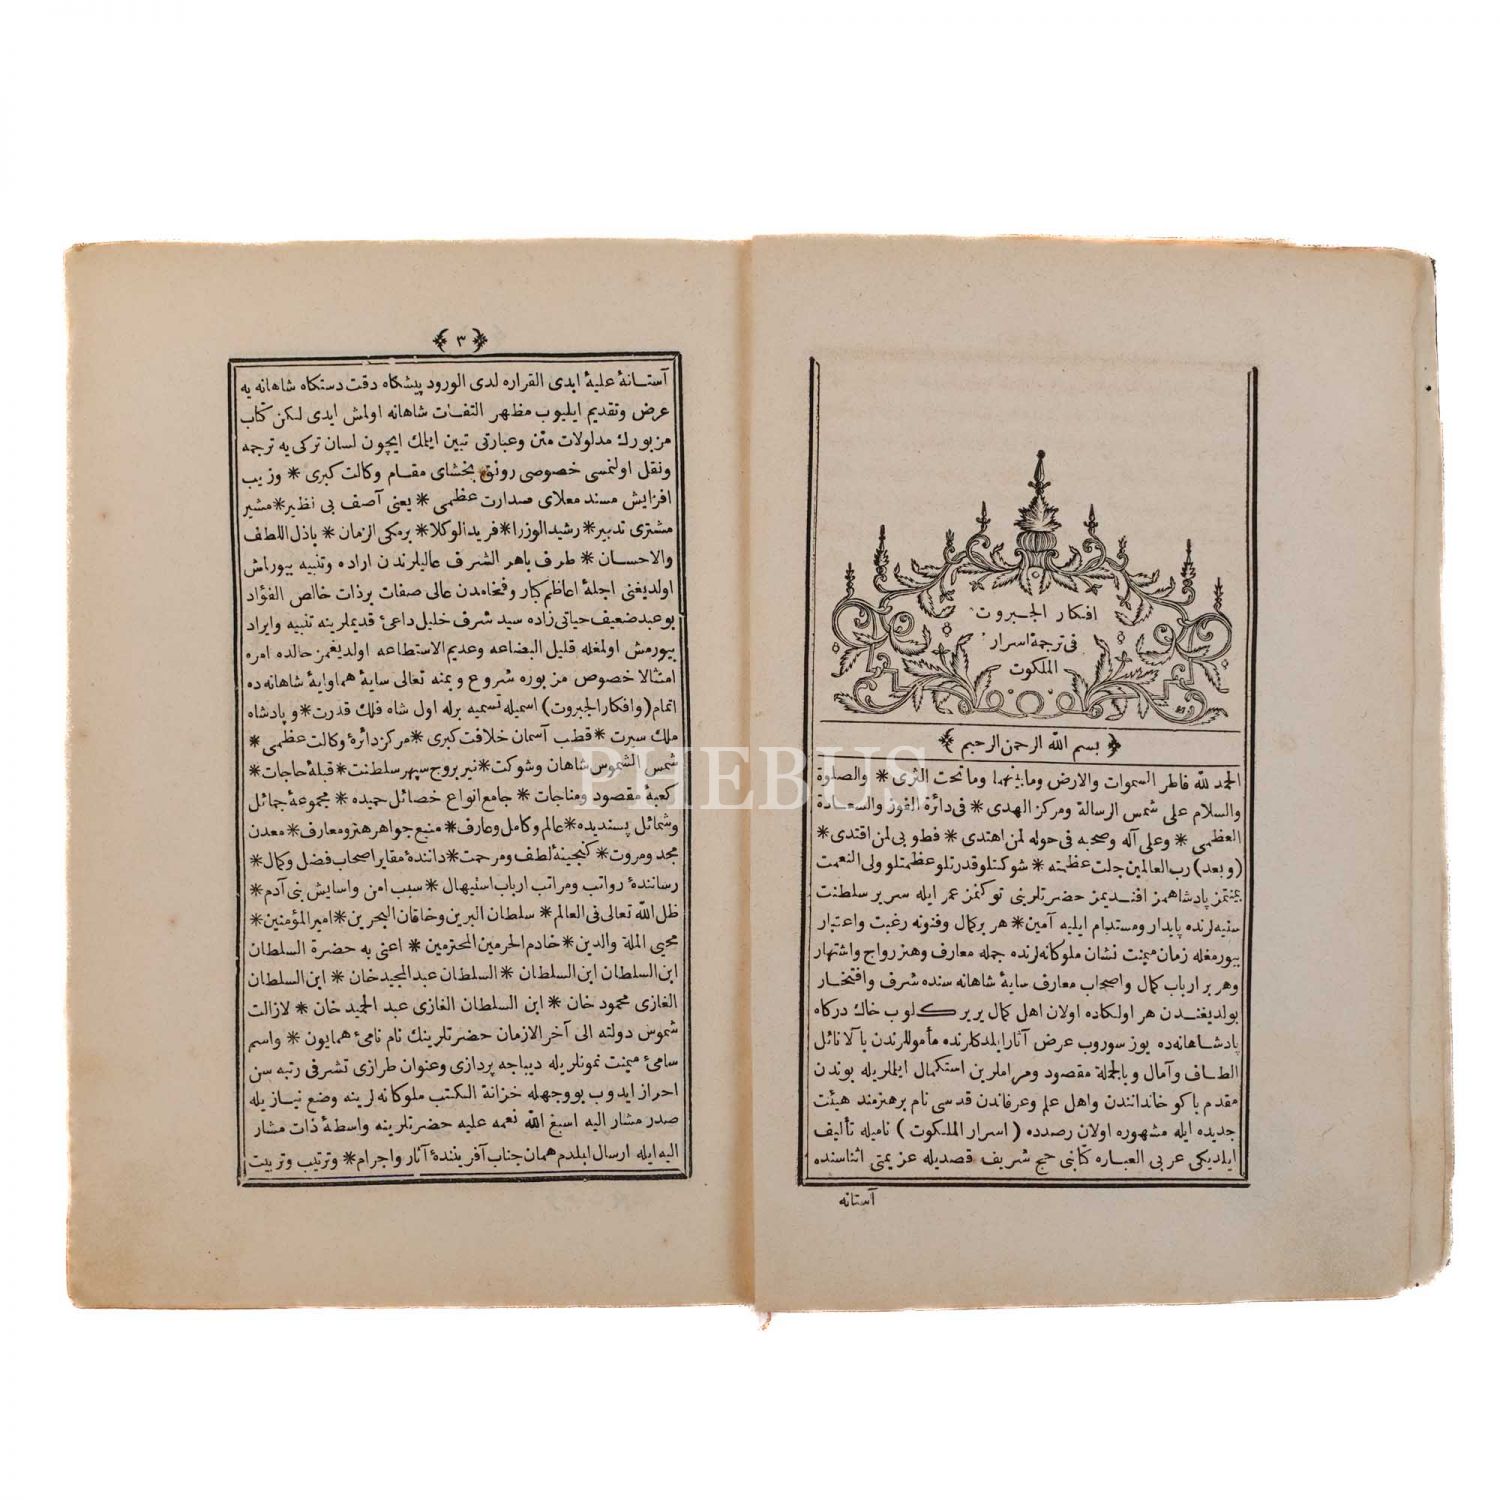 افكار الجبروت
فى ترجمة اسرار
الملكوت
بسم الله الرحمن الرحيم
الحمد لله فاطر السموات والارض وما بينهما وما تحت الثرى * والصلوة
والسلام على شمس الرسالة ومركز الهدى * فى دائرة الفوز والسعادة
العظمى * وعلى آله وصحبه فى حوله لمن اهتدى * فطوبى لمن اقتدى *
(وبعد) رب العالمين جلت عظمته * شوكتلو قدرتلو عظمتلو ولى النعمت
بيمنتمز پادشاهمز افنديمز حضرتلرينى توكنمز عمر ايله سرير سلطنت
سنيه لرنده پايدار ومستدام ايليه آمين * هر بر كمال وفنونه رغبت واعتبار
بيورمغله زمان ميمنت نشان ملوكانه لرنده جمله معارف وهنر رواج واشتهار
وهر بر ارباب كمال واصحاب معارف سايۀ شاهانه سنده شرف وافتخار
بولديغندن هر اولكاده اولان اهل كمال برير كلوب خاك دركاه
پادشاهانه ده يوز سوروب عرض آثار ايلدكلرنده مأموللرندن بالا نائل
الطاف وآمال وبالجملة مقصود ومراملرين استكمال ايلملريله بوندن
مقدم باكو خاندانندن واهل علم وعرفاندن قدسى نام برهنرمند هيئت
جديده ايله مشهوره اولان رصدده (اسرار الملكوت) ناميله تأليف
ايلديكى عربى العباره كتابى حج شريف قصديله عزيمتى اثناسنده
آستانه
٣
آستانۀ عليۀ ابدى القراره لدى الورود پيشكاه دقت دستكاه شاهانه يه
عرض وتقديم ايليوب مظهر التفات شاهانه اولمش ايدى لكن كتاب
مزبورك مدلولات متن وعبارتى تبين ايلمك ايچون لسان تركى يه ترجمه
ونقل اولنمسى خصوصى رونق بخشاى مقام وكالت كبرى * وزيب
افزايش مسند معلاى صدارت عظمى * يعنى آصف بى نظير * مشير
مشترى تدبير * رشيد الوزرا * فريد الوكلا * برمكى الزمان * باذل اللطف
والاحسان * طرف باهر الشرف عاليلرندن اراده وتنبيه بيورلمش
اولديغنى اجلۀ اعاظم كبار وفخامدن عالى صفات برذات خالص الفؤاد
بو عبد ضعيف حياتى زاده سيد شرف خليل داعئ قديملرينه تنبيه وايراد
بيورمش اولمغله قليل البضاعه وعديم الاستطاعه اولديغمز حالده امره
امتثالا خصوص مزبوره شروع وبمنه تعالى سايۀ هماوايۀ شاهانه ده
اتمام (وافكار الجبروت) اسميله تسميه برله اول شاه فلك قدرت * وپادشاه
ملك سيرت * قطب آسمان خلافت كبرى * مركز دائرۀ وكالت عظمى *
شمس الشموس شاهان وشوكت * نير بروج سپهر سلطنت * قبلۀ حاجات *
كعبۀ مقصود ومناجات * جامع انواع خصائل حميده * مجموعۀ جمائل
وشمائل پسنديده * عالم وكامل وعارف * منبع جواهر هنر ومعارف * معدن
مجد ومروت * كنجينۀ لطف ومرحمت * دانندۀ مقابر اصحاب فضل وكمال *
رسانندۀ رواتب ومراتب ارباب استيهال * سبب امن واسايش بنى آدم *
ظل الله تعالى فى العالم * سلطان البرين وخاقان البحرين * امير المؤمنين *
محيى الملة والدين * خادم الحرمين المحترمين * اعنى به حضرة السلطان
ابن السلطان ابن السلطان * السلطان عبد المجيد خان * ابن السلطان
الغازى محمود خان * ابن السلطان الغازى عبد الحميد خان * لازالت
شموس دولته الى آخر الازمان حضرتلرينك نام نامئ همايون * واسم
سامئ ميمنت نمونلريله ديباجه پردازى وعنوان طرازى تشرفى رتبه سن
احراز ايدوب بووجهله خزانة الكتب ملوكانه لرينه وضع نيازيله
صدر مشار اليه اسبغ الله نعمه عليه حضرتلرينه واسطۀ ذات مشار
اليه ايله ارسال ايلدم همان جناب آفرينندۀ آثار واجرام * وترتيب وتربيت
PHEBUS